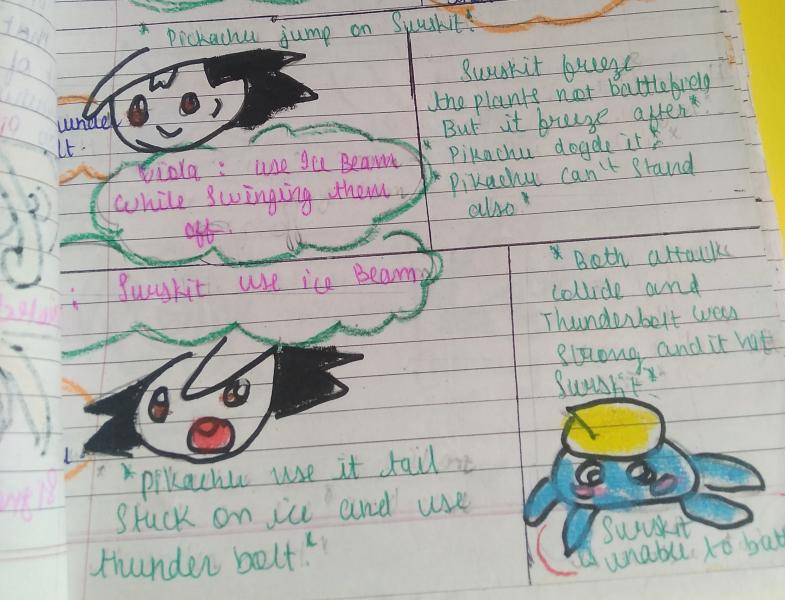 * Pickachu jump on Surskit.*
unde
lt.
Viola : use Ice Beam
while swinging them
off.
Surskit freeze
the plants not battlefield
But it freeze after*
* Pikachu dogde it *
* Pikachu can't stand
also*
: Surskit use ice Beam
* pikachu use it tail
Stuck on ice and use
thunder bolt.*
* Both attack
collide and
Thunderbolt wees
strong and it hit
Surskit*
Surskit
is unable to bat